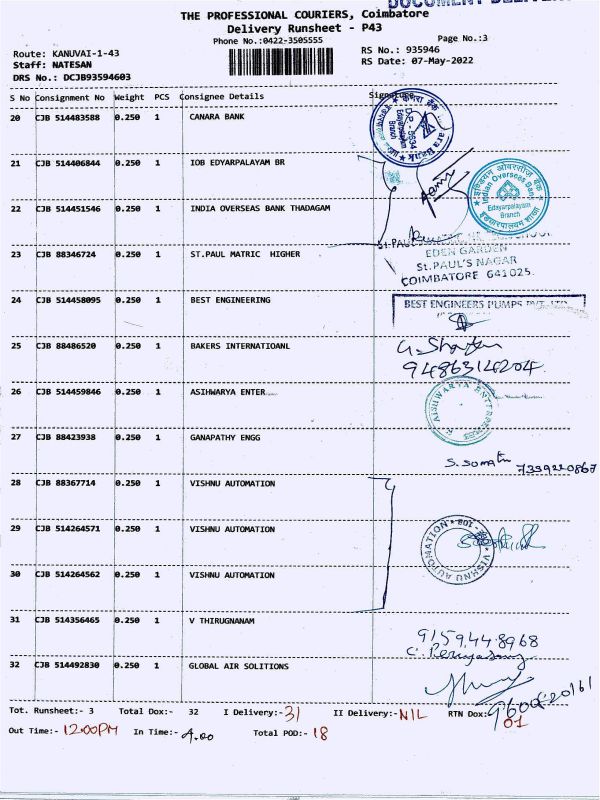 DOCUMENT DELIVER
THE PROFESSIONAL COURIERS, Coimbatore
Delivery Runsheet - P43
Phone No.:0422-3505555
Page No.:3
Route: KANUVAI-1-43
RS No.: 935946
Staff: NATESAN
RS Date: 07-May-2022
DRS No.: DCJB93594603
S No Consignment No Weight PCS Consignee Details Signature
20 CJB 514483588 0.250 1 CANARA BANK
21 CJB 514406844 0.250 1 IOB EDYARPALAYAM BR
इण्डियन ओवरसीज़ बैंक
Indian Overseas Bank
Edayarpalayam
Branch
22 CJB 514451546 0.250 1 INDIA OVERSEAS BANK THADAGAM
23 CJB 88346724 0.250 1 ST.PAUL MATRIC HIGHER
EDEN GARDEN
St.PAUL'S NAGAR
COIMBATORE 641025.
24 CJB 514458095 0.250 1 BEST ENGINEERING
BEST ENGINEERS PUMPS PVT. LTD
25 CJB 88486520 0.250 1 BAKERS INTERNATIOANL
9486314204
26 CJB 514459846 0.250 1 ASIHWARYA ENTER
AISHWARYA ENTERPRISES
27 CJB 88423938 0.250 1 GANAPATHY ENGG
S. Somathi 7339220867
28 CJB 88367714 0.250 1 VISHNU AUTOMATION
29 CJB 514264571 0.250 1 VISHNU AUTOMATION
VISHNU AUTOMATION
30 CJB 514264562 0.250 1 VISHNU AUTOMATION
31 CJB 514356465 0.250 1 V THIRUGNANAM
9159448968
32 CJB 514492830 0.250 1 GLOBAL AIR SOLITIONS
Tot. Runsheet:- 3 Total Dox:- 32 I Delivery:- 31 II Delivery:- NIL RTN Dox:- 01
Out Time:- 12:00PM In Time:- 4.00 Total POD:- 18